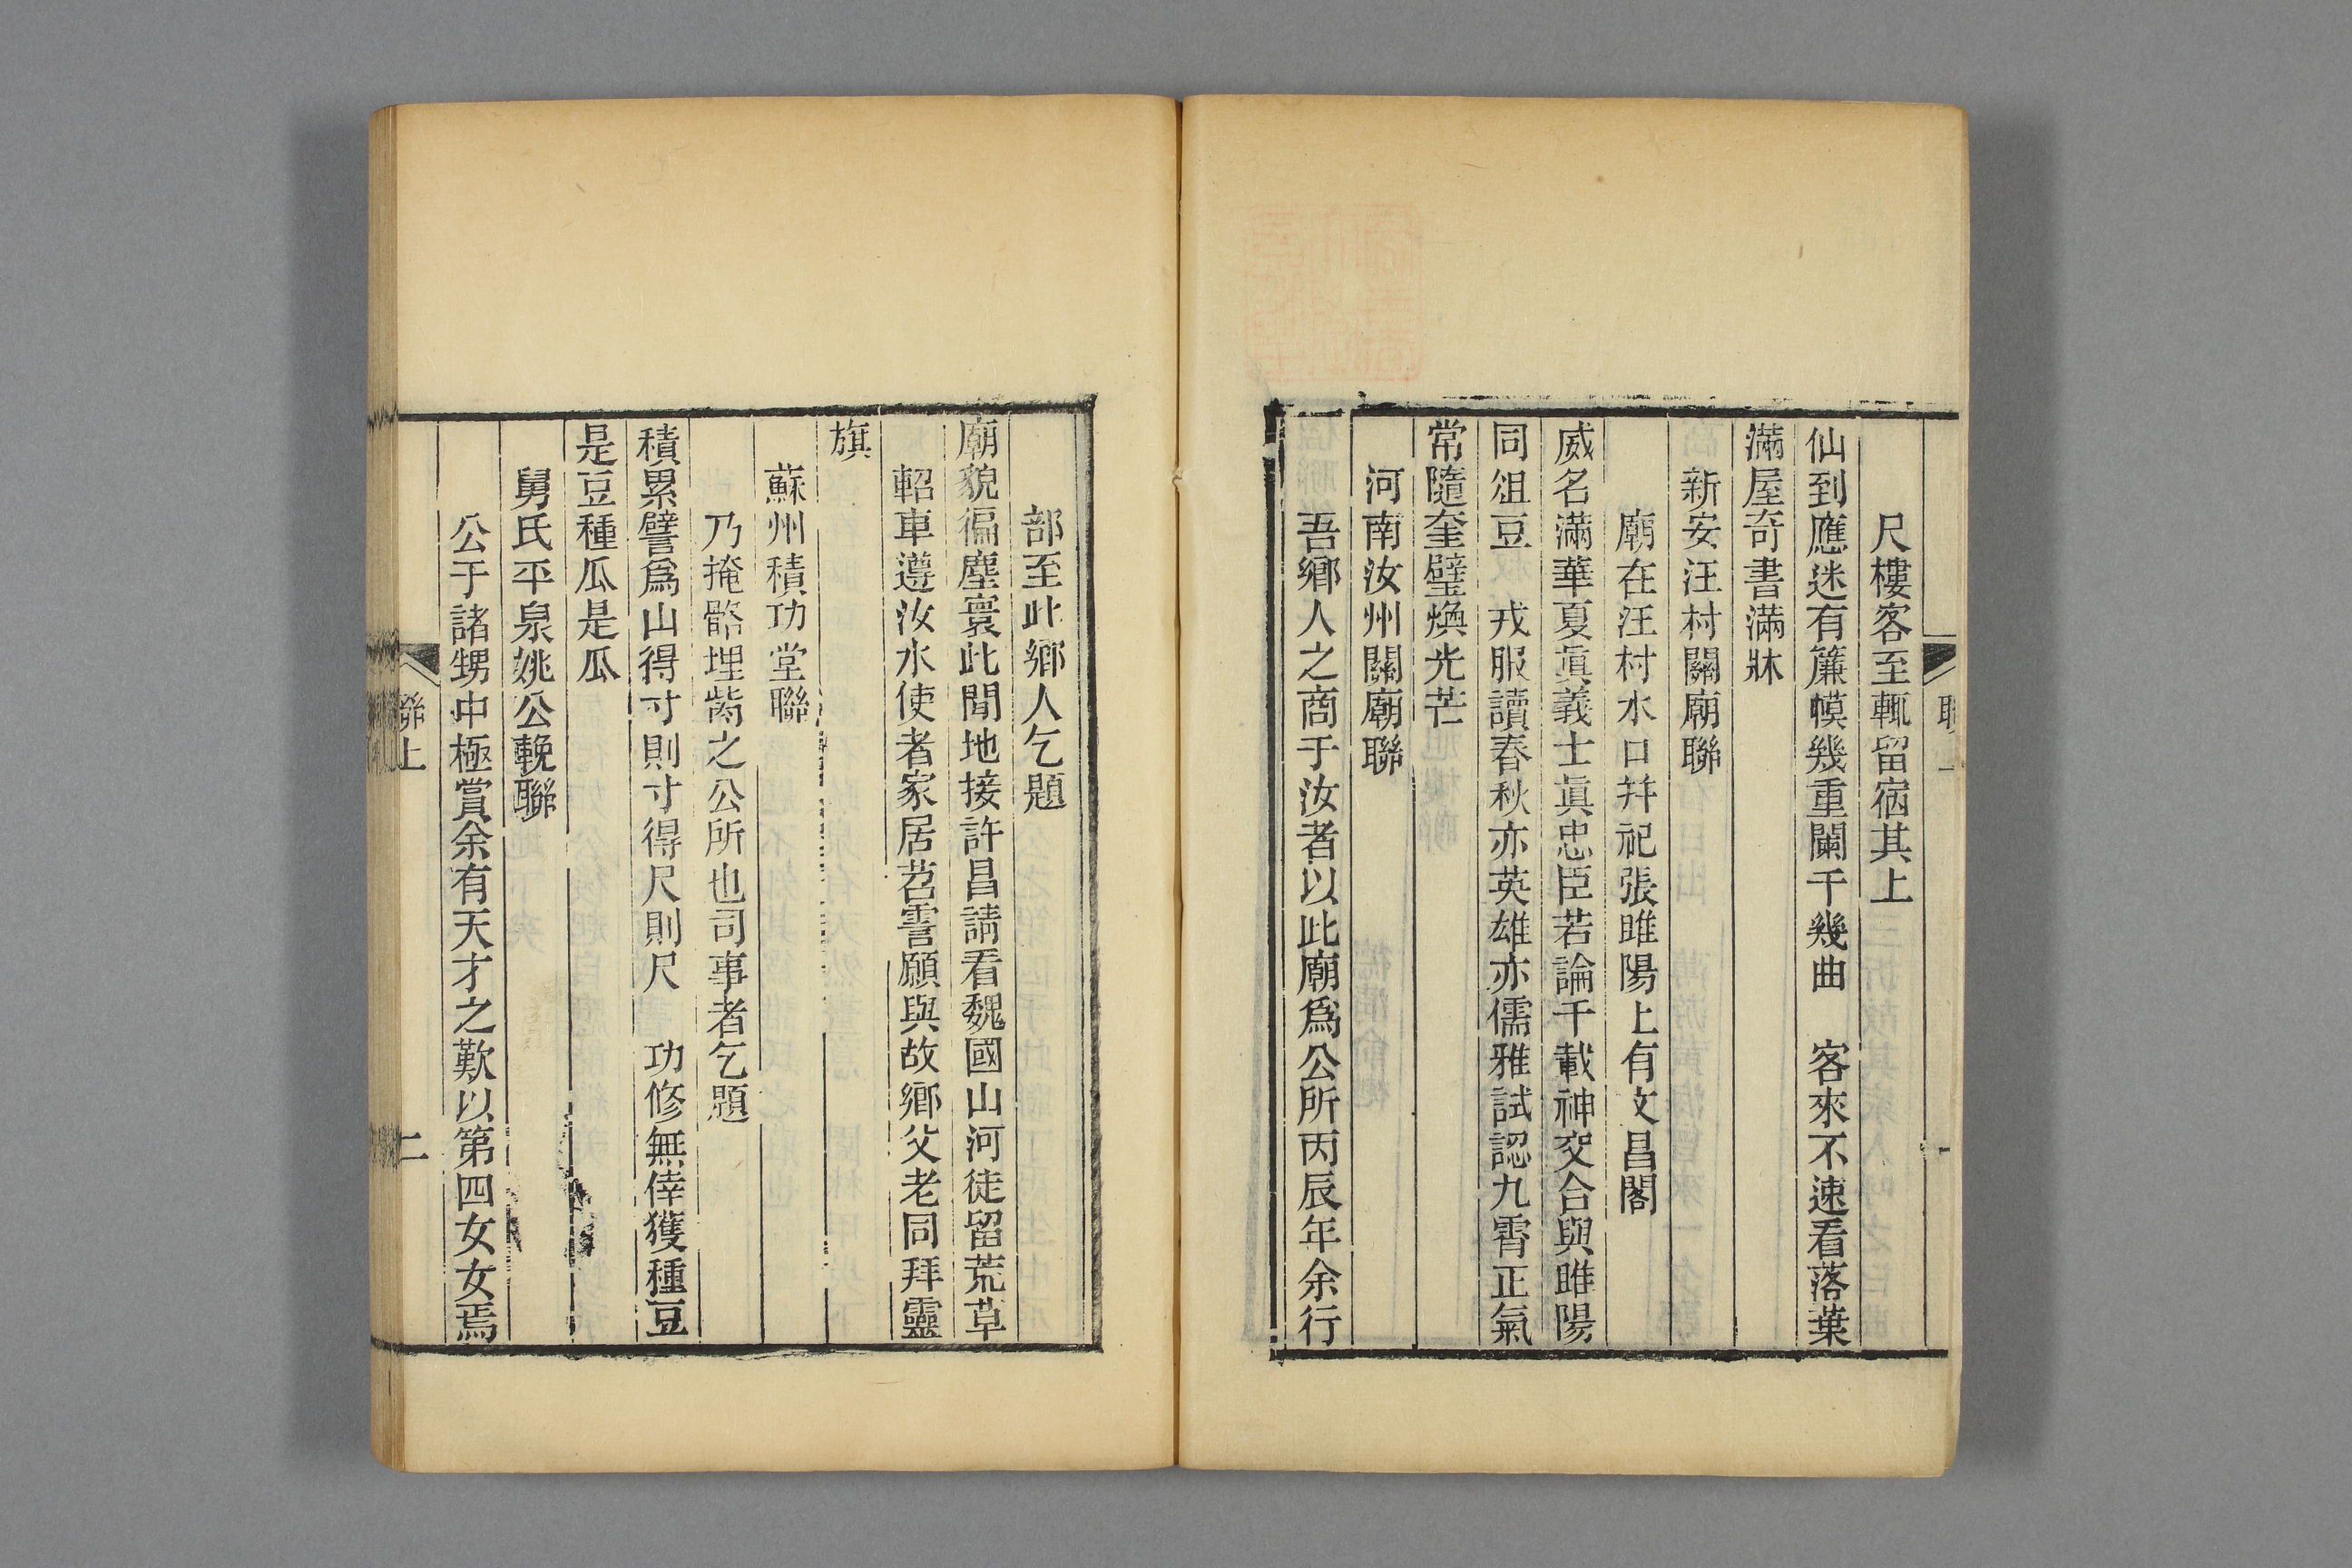 尺樓客至輒留宿其上
仙到應迷有簾幙幾重闌干幾曲　客來不速看落葉
滿屋奇書滿牀
新安汪村關廟聯
廟在汪村水口并祀張睢陽上有文昌閣
威名滿華夏眞義士眞忠臣若論千載神交合與睢陽
同俎豆　戎服讀春秋亦英雄亦儒雅試認九霄正氣
常隨奎璧煥光芒
河南汝州關廟聯
吾鄉人之商于汝者以此廟爲公所丙辰年余行
部至此鄉人乞題
廟貌徧塵寰此閒地接許昌請看魏國山河徒留荒草
軺車遵汝水使者家居苕霅願與故鄉父老同拜靈
旗
蘇州積功堂聯
乃掩骼埋胔之公所也司事者乞題
積累譬爲山得寸則寸得尺則尺　功修無倖獲種豆
是豆種瓜是瓜
舅氏平泉姚公輓聯
公于諸甥中極賞余有天才之歎以第四女女焉
聯上
二